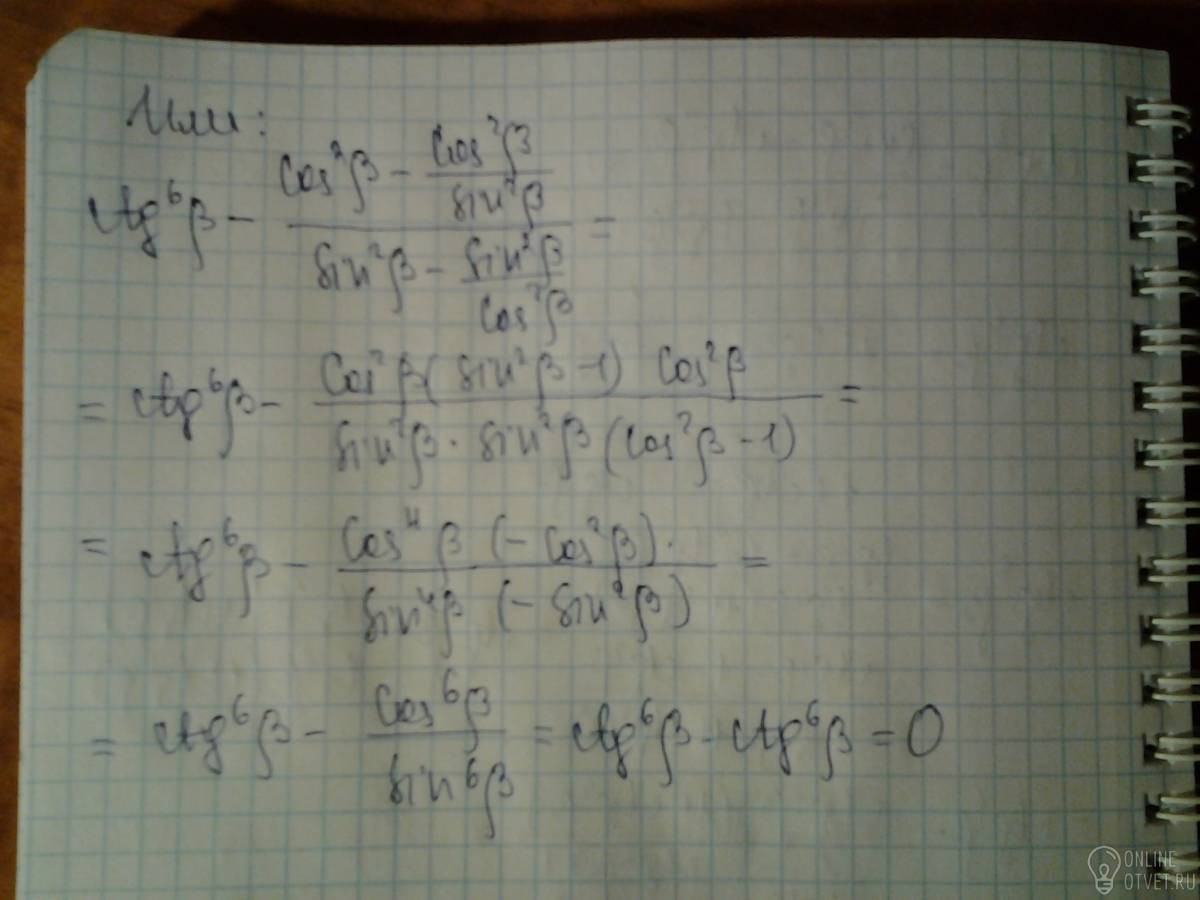 Или:
ctg⁶β - (cos²β - cos²β/sin²β)/(sin²β - sin²β/cos²β) =
= ctg⁶β - (cos²β(sin²β-1) cos²β)/(sin²β · sin²β(cos²β-1)) =
= ctg⁶β - (cos⁴β (-cos²β)·)/(sin⁴β (-sin²β)) =
= ctg⁶β - cos⁶β/sin⁶β = ctg⁶β - ctg⁶β = 0
ONLINE
OTVET.RU